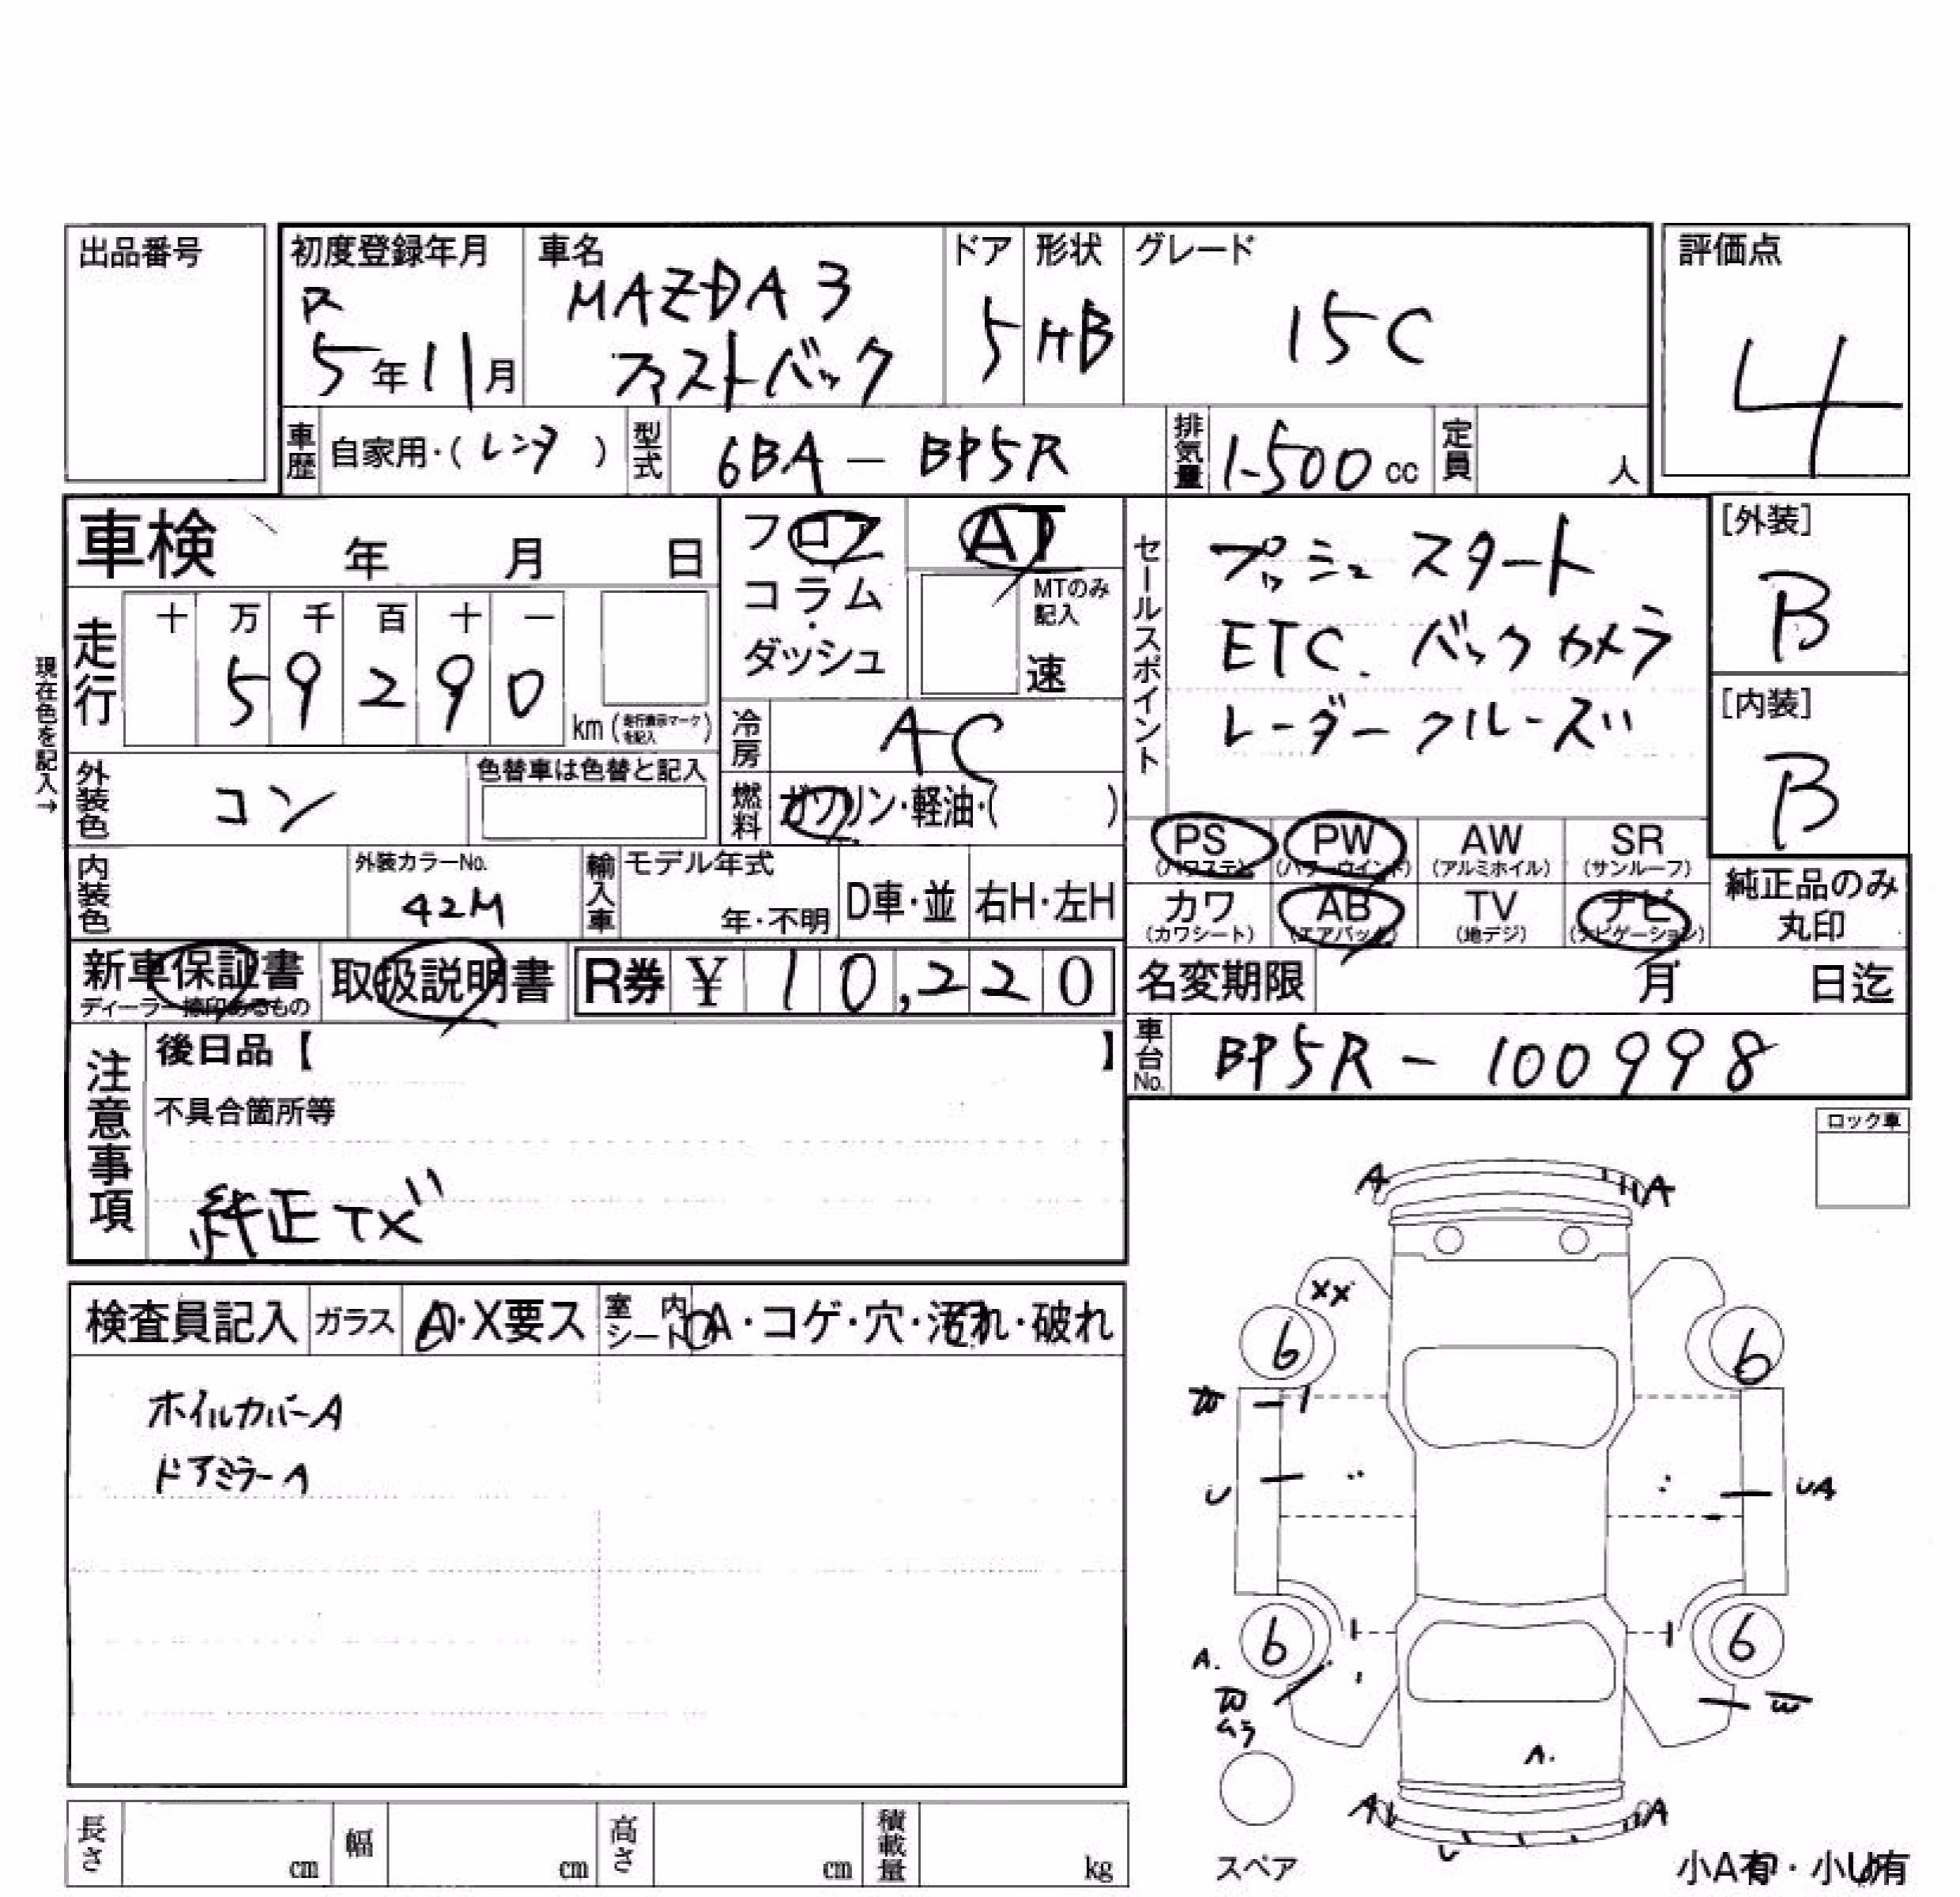 出品番号
初度登録年月
R
5年11月
車名
MAZDA 3
ファストバック
ドア
5
形状
HB
グレード
15C
評価点
4
車歴
自家用・(レンタ)
型式
6BA-BP5R
排気量
1500cc
定員
人
車検
年 月 日
走行
十 万 千 百 十 一
5 9 2 9 0
km(走行表示マークを記入)
現在色を記入→
外装色
コン
色替車は色替と記入
内装色
外装カラーNo.
42M
輸入車
モデル年式
年・不明
D車・並
右H・左H
フロア
コラム
・
ダッシュ
AT
MTのみ
記入
速
冷房
AC
燃料
ガソリン・軽油・( )
セールスポイント
プッシュスタート
ETC. バックカメラ
レーダークルーズ
[外装]
B
[内装]
B
PS
(パワステ)
PW
(パワーウインド)
AW
(アルミホイル)
SR
(サンルーフ)
カワ
(カワシート)
AB
(エアバック)
TV
(地デジ)
ナビ
(ナビゲーション)
純正品のみ
丸印
新車保証書
ディーラー捺印あるもの
取扱説明書
R券 ¥ 10,220
名変期限
月 日迄
車台No.
BP5R-100998
注意事項
後日品【 】
不具合箇所等
純正
ロック車
検査員記入
ガラス
A・X要ス
室内
シート
A・コゲ・穴・汚れ・破れ
ホイルカバーA
ドアミラーA
A
A
XX
6
6
W
U
UA
6
6
A.
W
ムラ
W
A.
A
A
U
スペア
小A有・小U有
長さ
cm
幅
cm
高さ
cm
積載量
kg